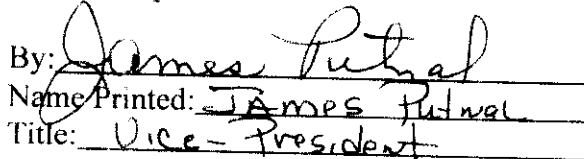 By: James Putnal
Name Printed: JAMES Putnal
Title: Vice-President